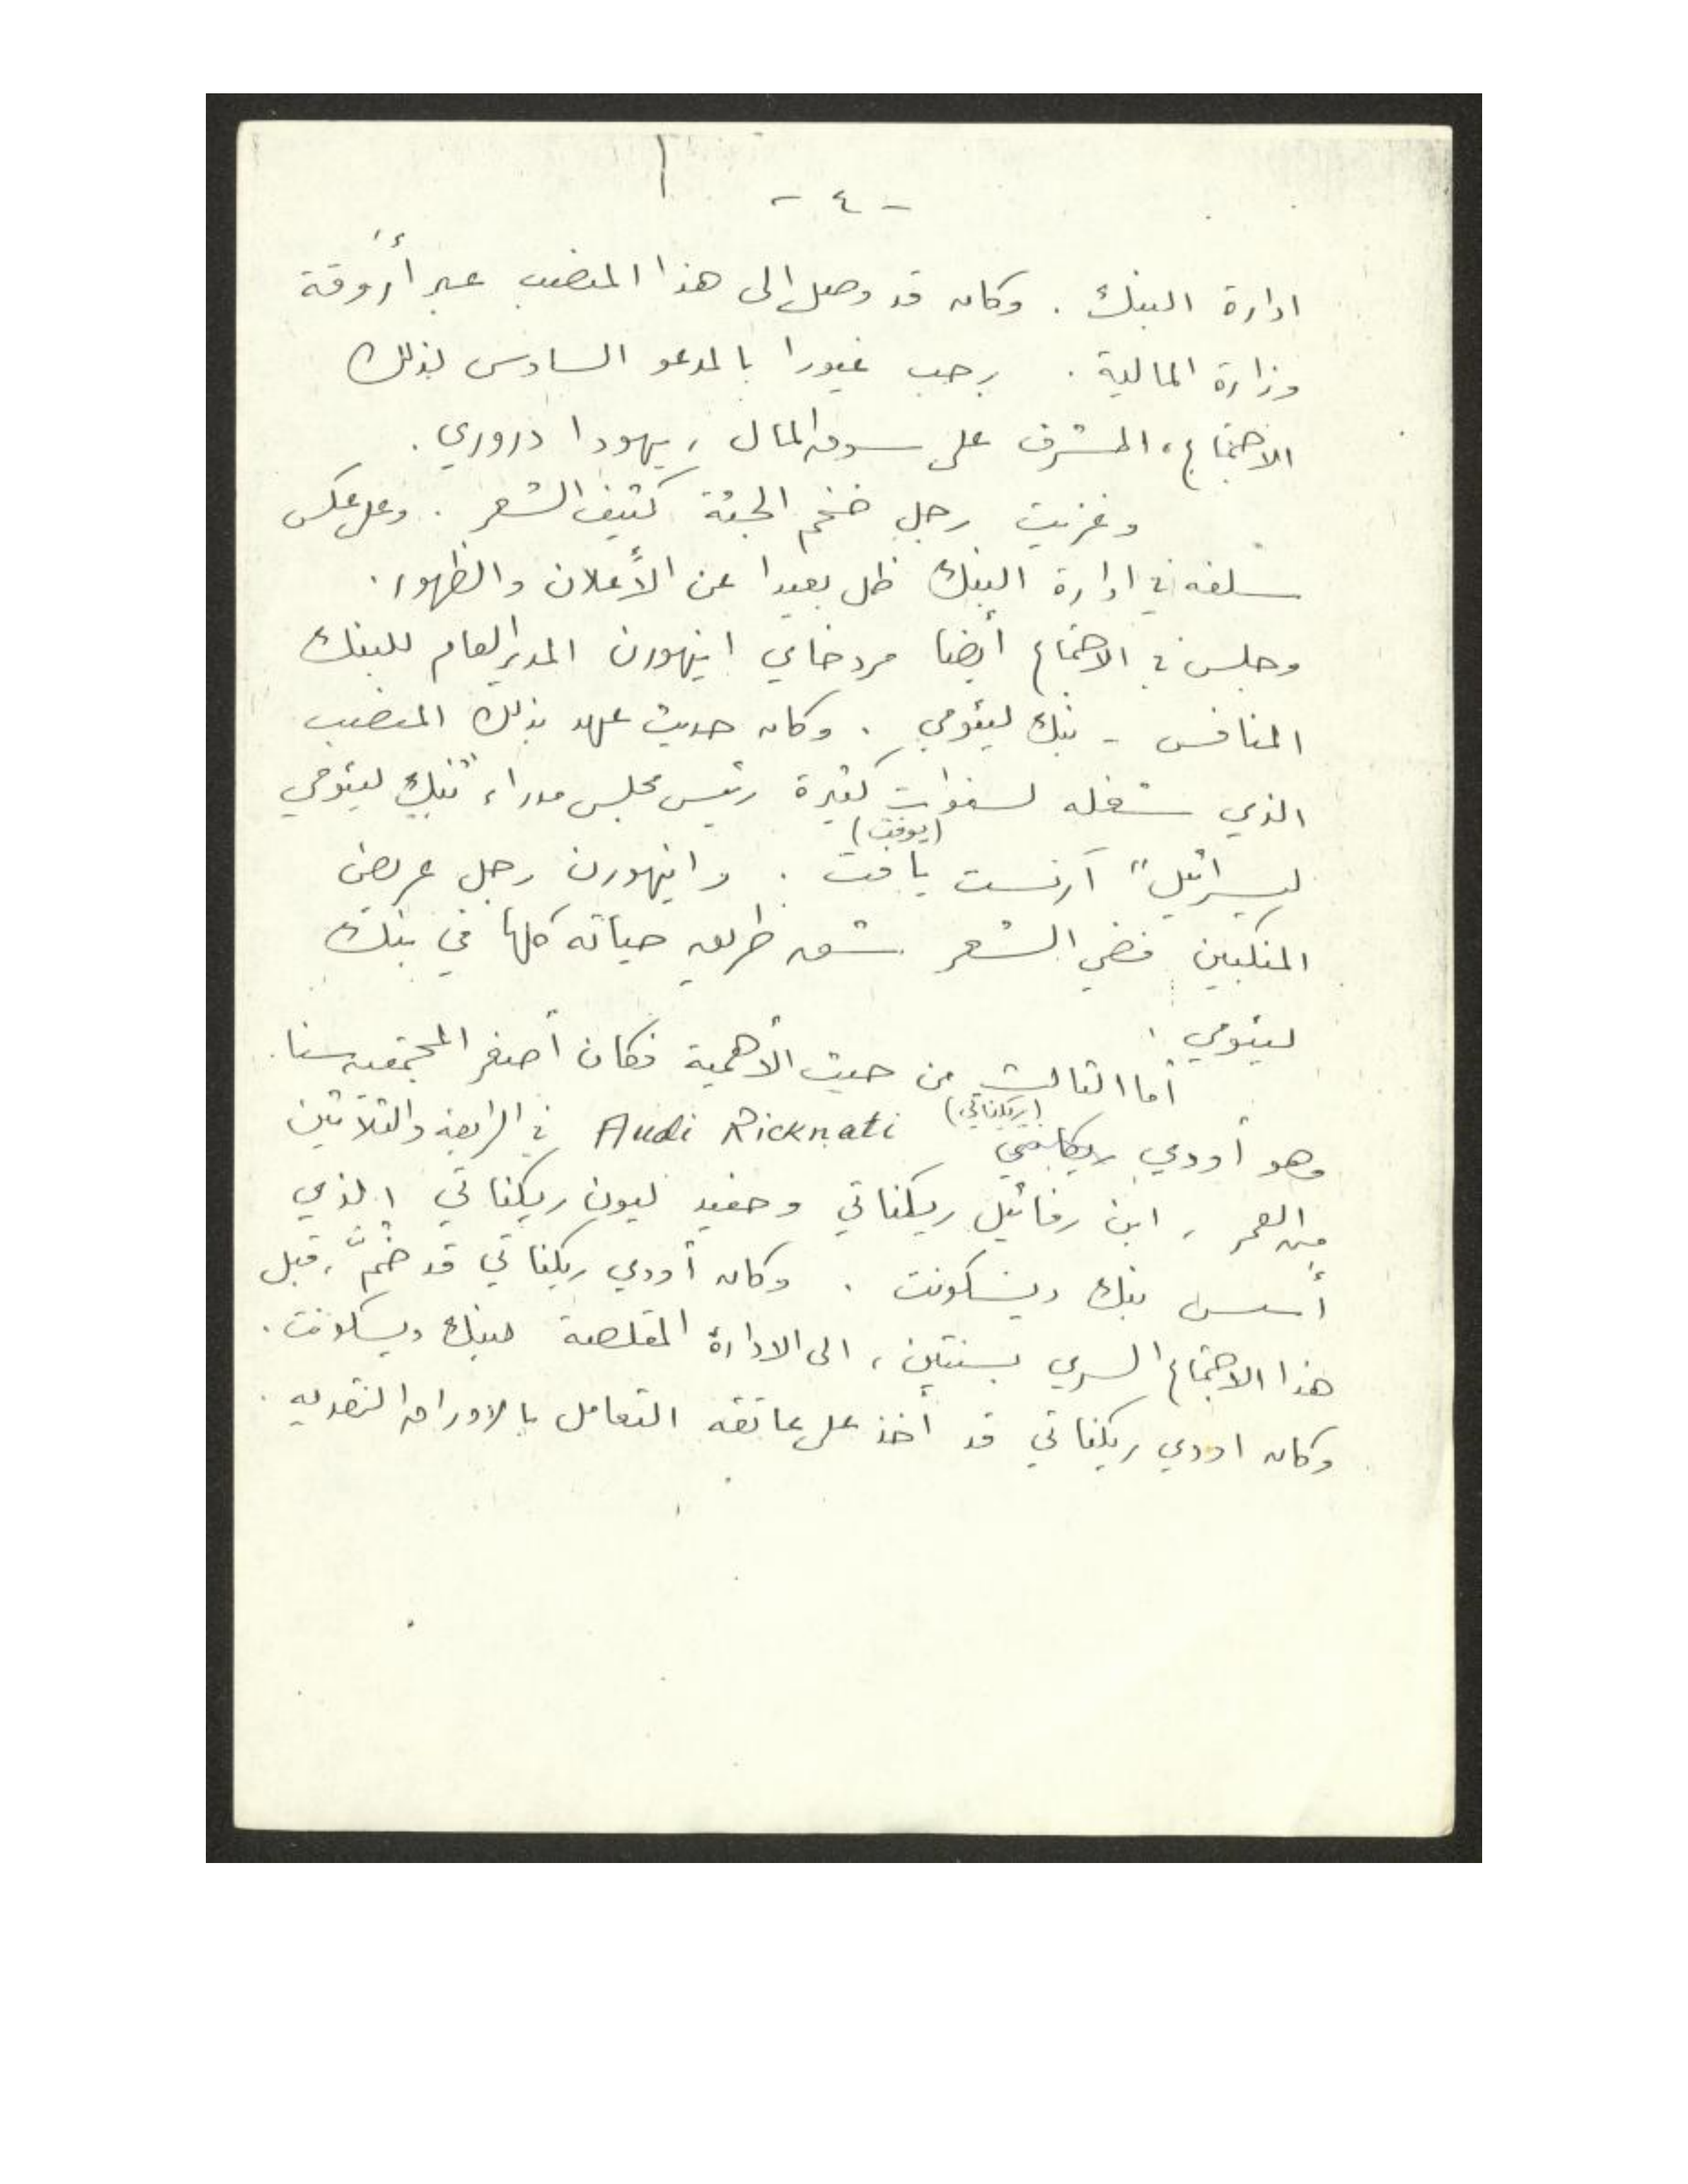 - ٤ -
ادارة البنك . وكان قد وصل الى هذا المنصب عبر أروقة
وزارة المالية . رحب غيورا بالمدعو السادس لذلك
الاجتماع، المشرف على سوق المال ، يهودا دروري .
وغزيت رجل ضخم الجثة كثيف الشعر . وعلى عكس
سلفه في ادارة البنك ظل بعيدا عن الأعلان والظهور .
وجلس في الاجتماع أيضا مردخاي اينهورن المدير العام للبنك
المنافس - بنك ليئومي . وكان حديث عهد بذلك المنصب
الذي شغله لسنوات كثيرة رئيس مجلس مدراء "بنك ليئومي
(يوفت)
ليسرائيل" آرنست يافت . واينهورن رجل عريض
المنكبين فضي الشعر شق طريق حياته كلها في بنك
ليئومي .
أما الثالث من حيث الأهمية فكان أصغر المجتمعين سنا .
(ريكناتي)
وهو أودي Audi Ricknati في الرابعة والثلاثين
من العمر ، ابن رفائيل ريكناتي وحفيد ليون ريكناتي الذي
أسس بنك ديسكونت . وكان أودي ريكناتي قد ضُمَّ ، قبل
هذا الاجتماع السري بسنتين ، الى الادارة المقلصة لبنك ديسكونت .
وكان اودي ريكناتي قد أخذ على عاتقه التعامل بالاوراق النقديه .